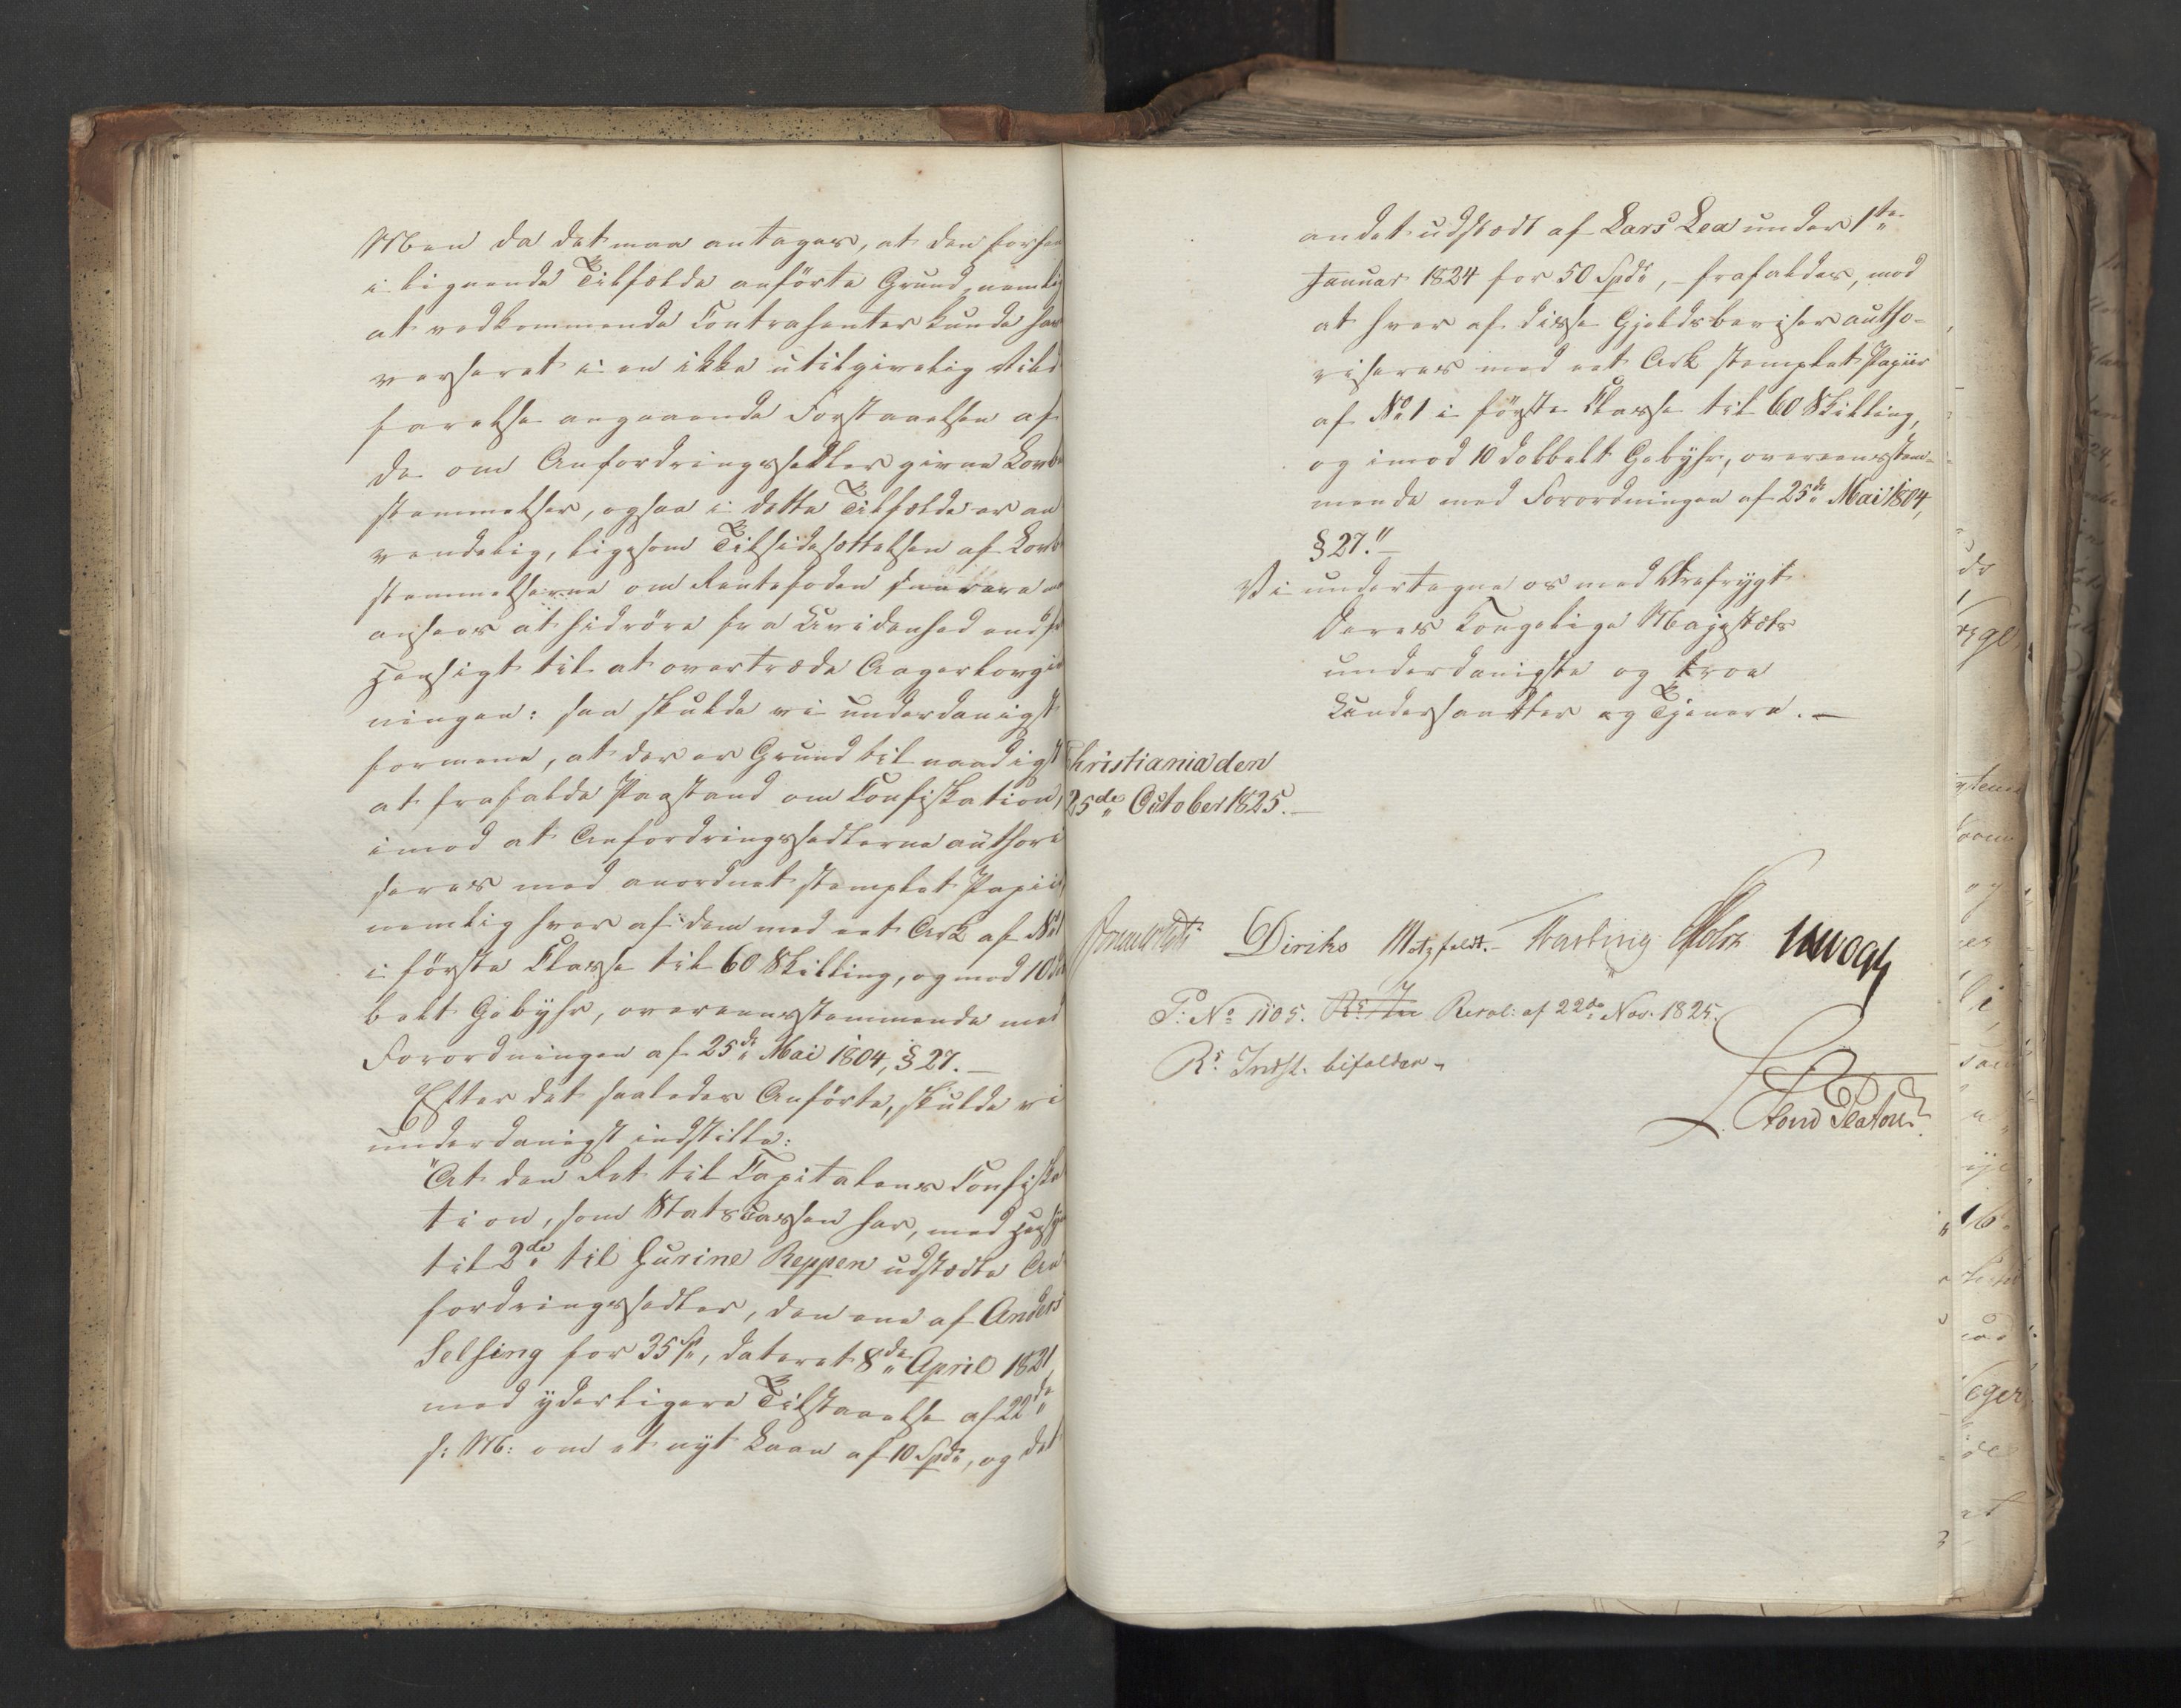 Men da det maa antages, at den forhen
i lignende Tilfælde anförte Grund, nemlig
at vedkommende Contrahenter kunde have
verseret i en ikke utilgivelig Vild
farelse angaaende Forstaaelsen af
de om Anfordringssedler givne Lovbe
stemmelser, ogsaa i dette Tilfælde er an
vendelig, ligesom Tilsidesættelsen af Lovbe
stemmelserne om Rentefoden snarere
ansees at hidröre fra Uvidenhed end fra
Hensigt til at overtræde Aagerlovgiv
ningen: saa skulde vi underdanigst
formene, at der er Grund til naadigst
at frafalde Paastand om Confiskation,
imod at Anfordringssedlerne authori
seres med anordnet stemplet Papiir,
nemlig hver af dem med eet Ark af No 1
i förste Classe til 60 Skilling, og mod 10 do
belt Gebyhr, overeensstemmende med
Forordningen af 25de Mai 1804, § 27.—
Efter det saaledes Anförte, skulde vi
underdanigst indstille:
"At den Ret til Capitalens Confiska
tion, som Statscassen har, med Hensyn
til 2de til Gurine Reppen udstædte An
fordringssedler, den ene af Anders
Selsing for 35 Sp, dateret 8de April 1821,
med yderligere Tilstaaelse af 22de
s: M: om et nyt Laan af 10 Spd, og det
andet udstædt af Lars Lea under 1te
Januar 1824 for 50 Spd, – frafaldes, mod
at hver af disse Gjeldsbeviser autho-
riseres med eet Ark stemplet Papiir
af No 1 i förste Classe til 60 Skilling,
og imod 10 dobbelt Gebyhr, overeensstem-
mende med Forordningen af 25de Mai 1804,
§ 27."—
Vi undertegne os med Ærefrygt
Deres Kongelige Majestæts
underdanigste og troe
Undersaatter og Tjenere.—
Christiania den
25de October 1825.—
Diriks Motzfeldt. Fasting Holst Vogt
P: No 1105. Resol: af 22de Nov. 1825.
Rs Indst. bifaldes.